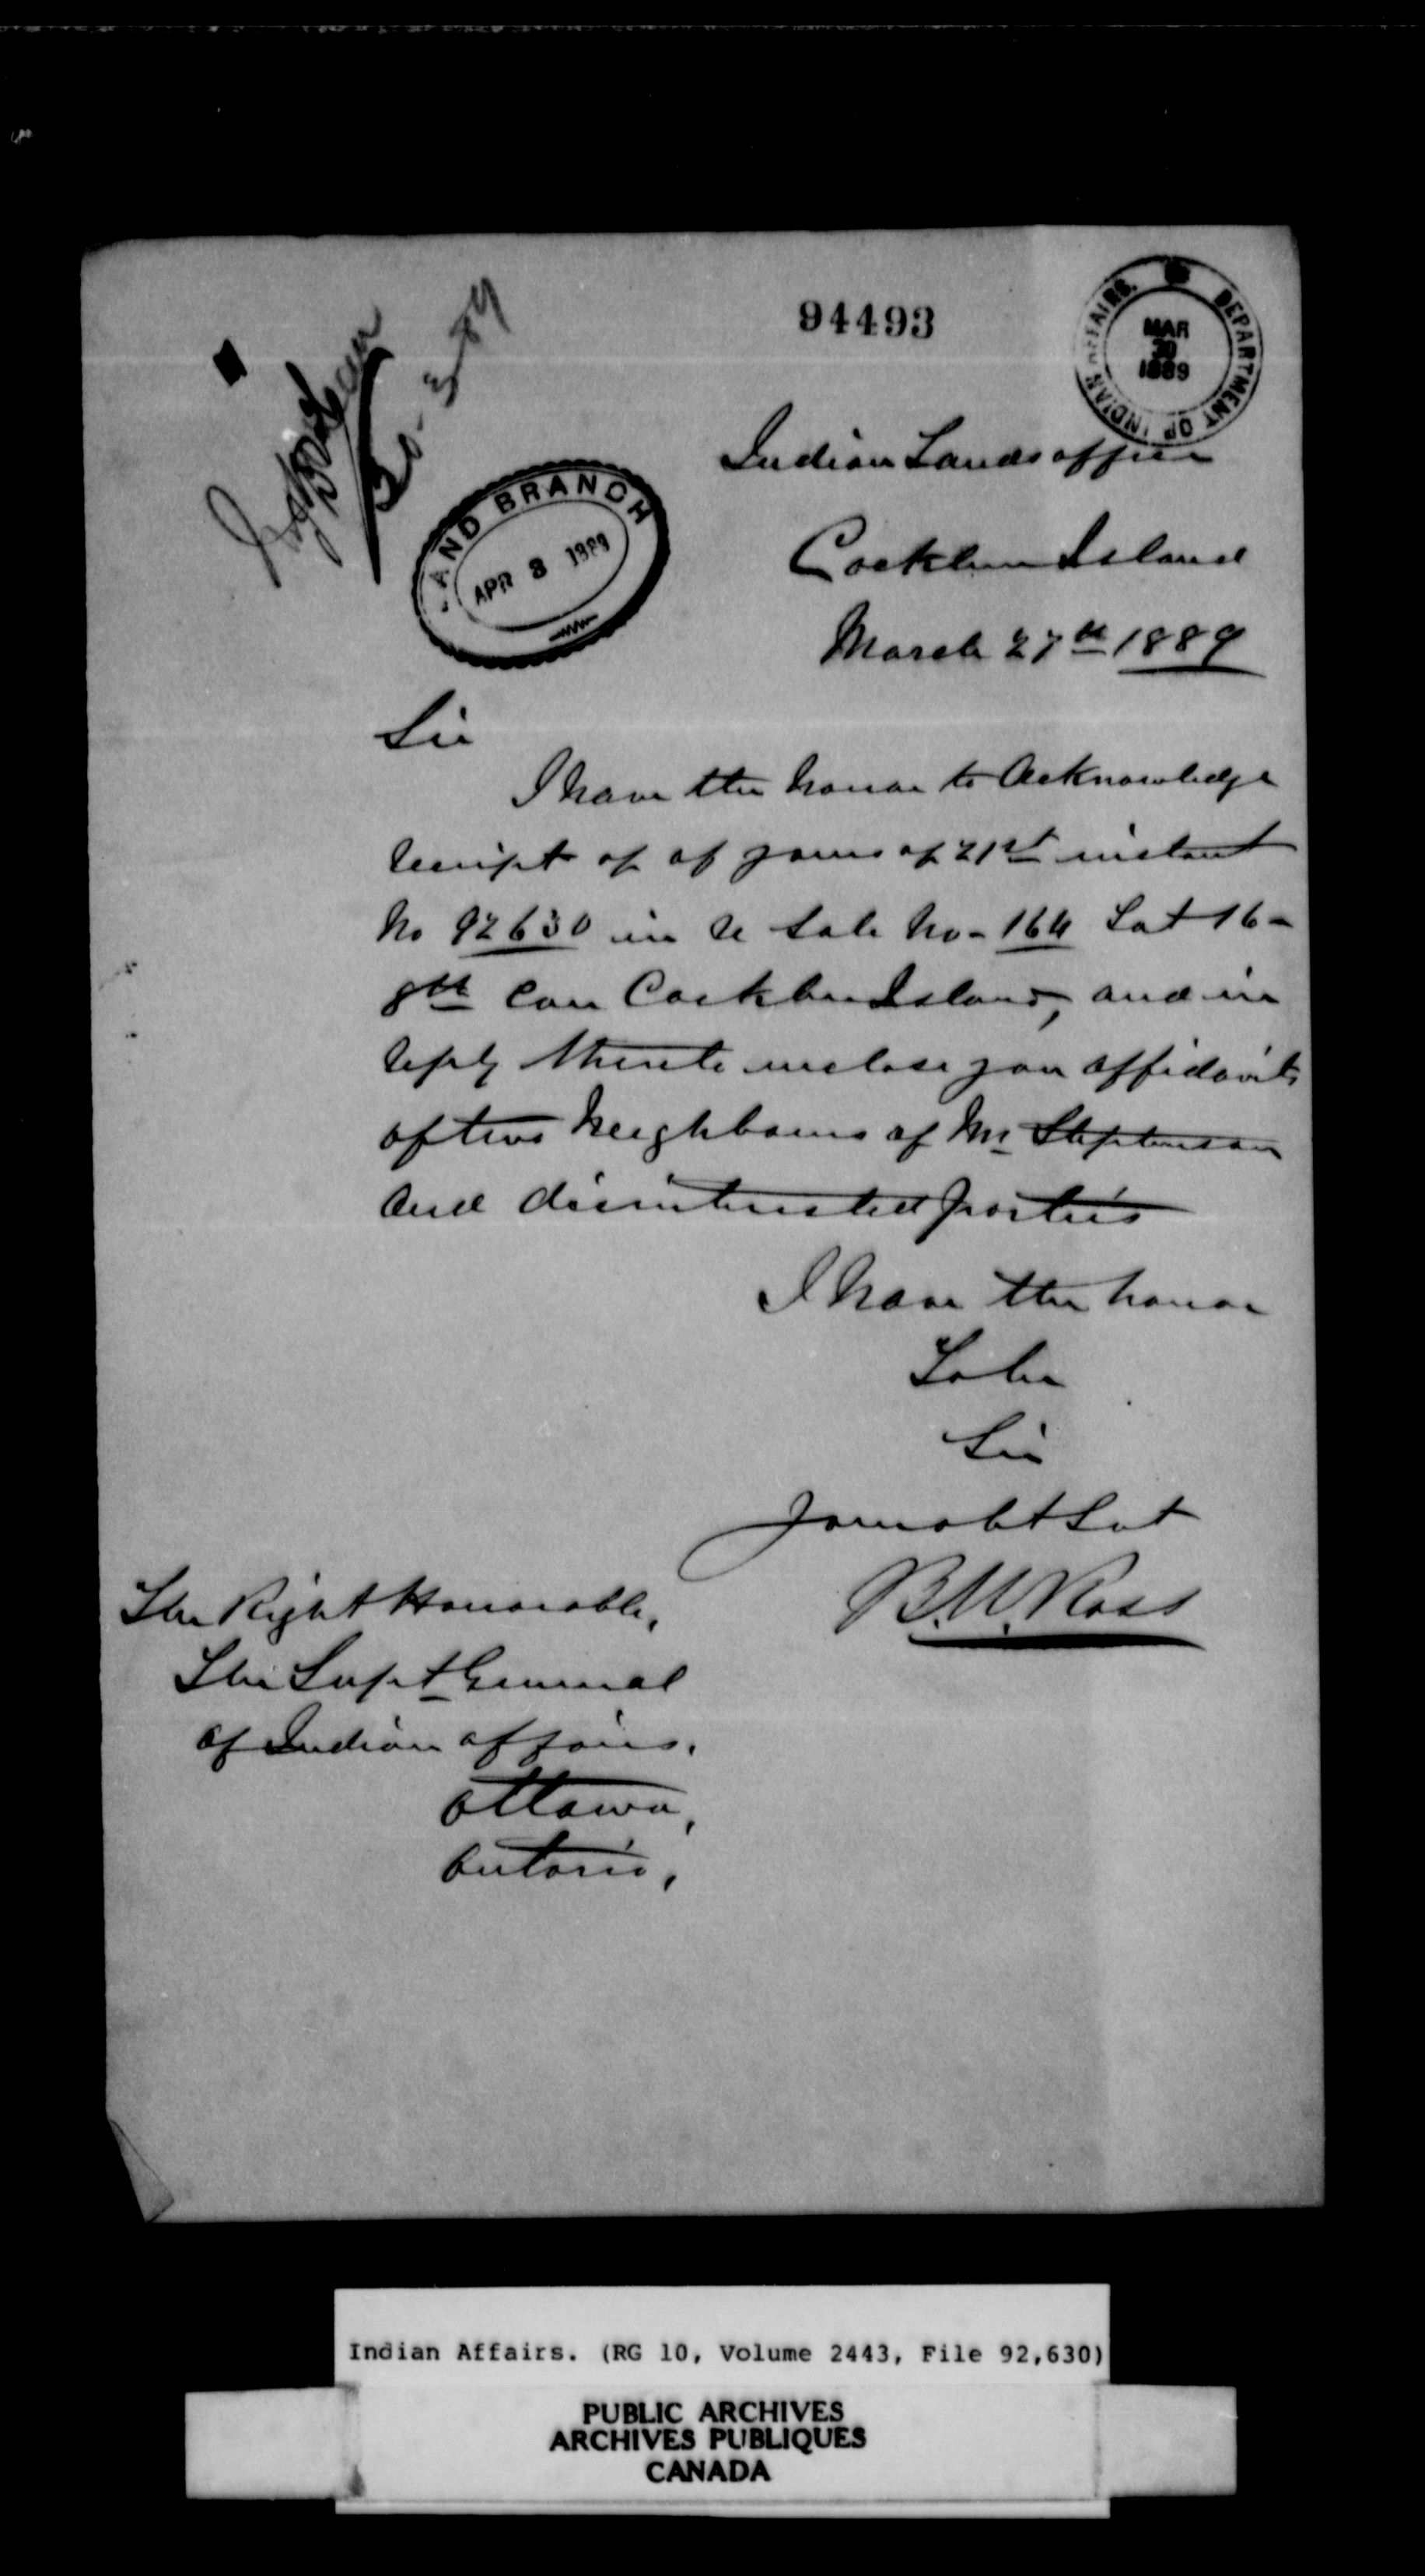 94493
DEPARTMENT OF INDIAN AFFAIRS.
MAR
30
1889
30-3-89
LAND BRANCH
APR 3 1889
Indian Lands office
Cockburn Island
March 27th 1889
Sir
I have the honor to Acknowledge
receipt of of yours of 21st instant
No 92630 in re Sale No - 164 Lot 16 -
8th Con Cockburn Island, and in
reply thereto inclose you affidavits
of two Neighbours of Mr Stephenson
and disinterested parties
I have the honor
To be
Sir
Your obt Svt
B.W. Ross
The Right Honorable,
The Supt General
of Indian affairs.
Ottawa,
Ontario,
Indian Affairs. (RG 10, Volume 2443, File 92,630)
PUBLIC ARCHIVES
ARCHIVES PUBLIQUES
CANADA